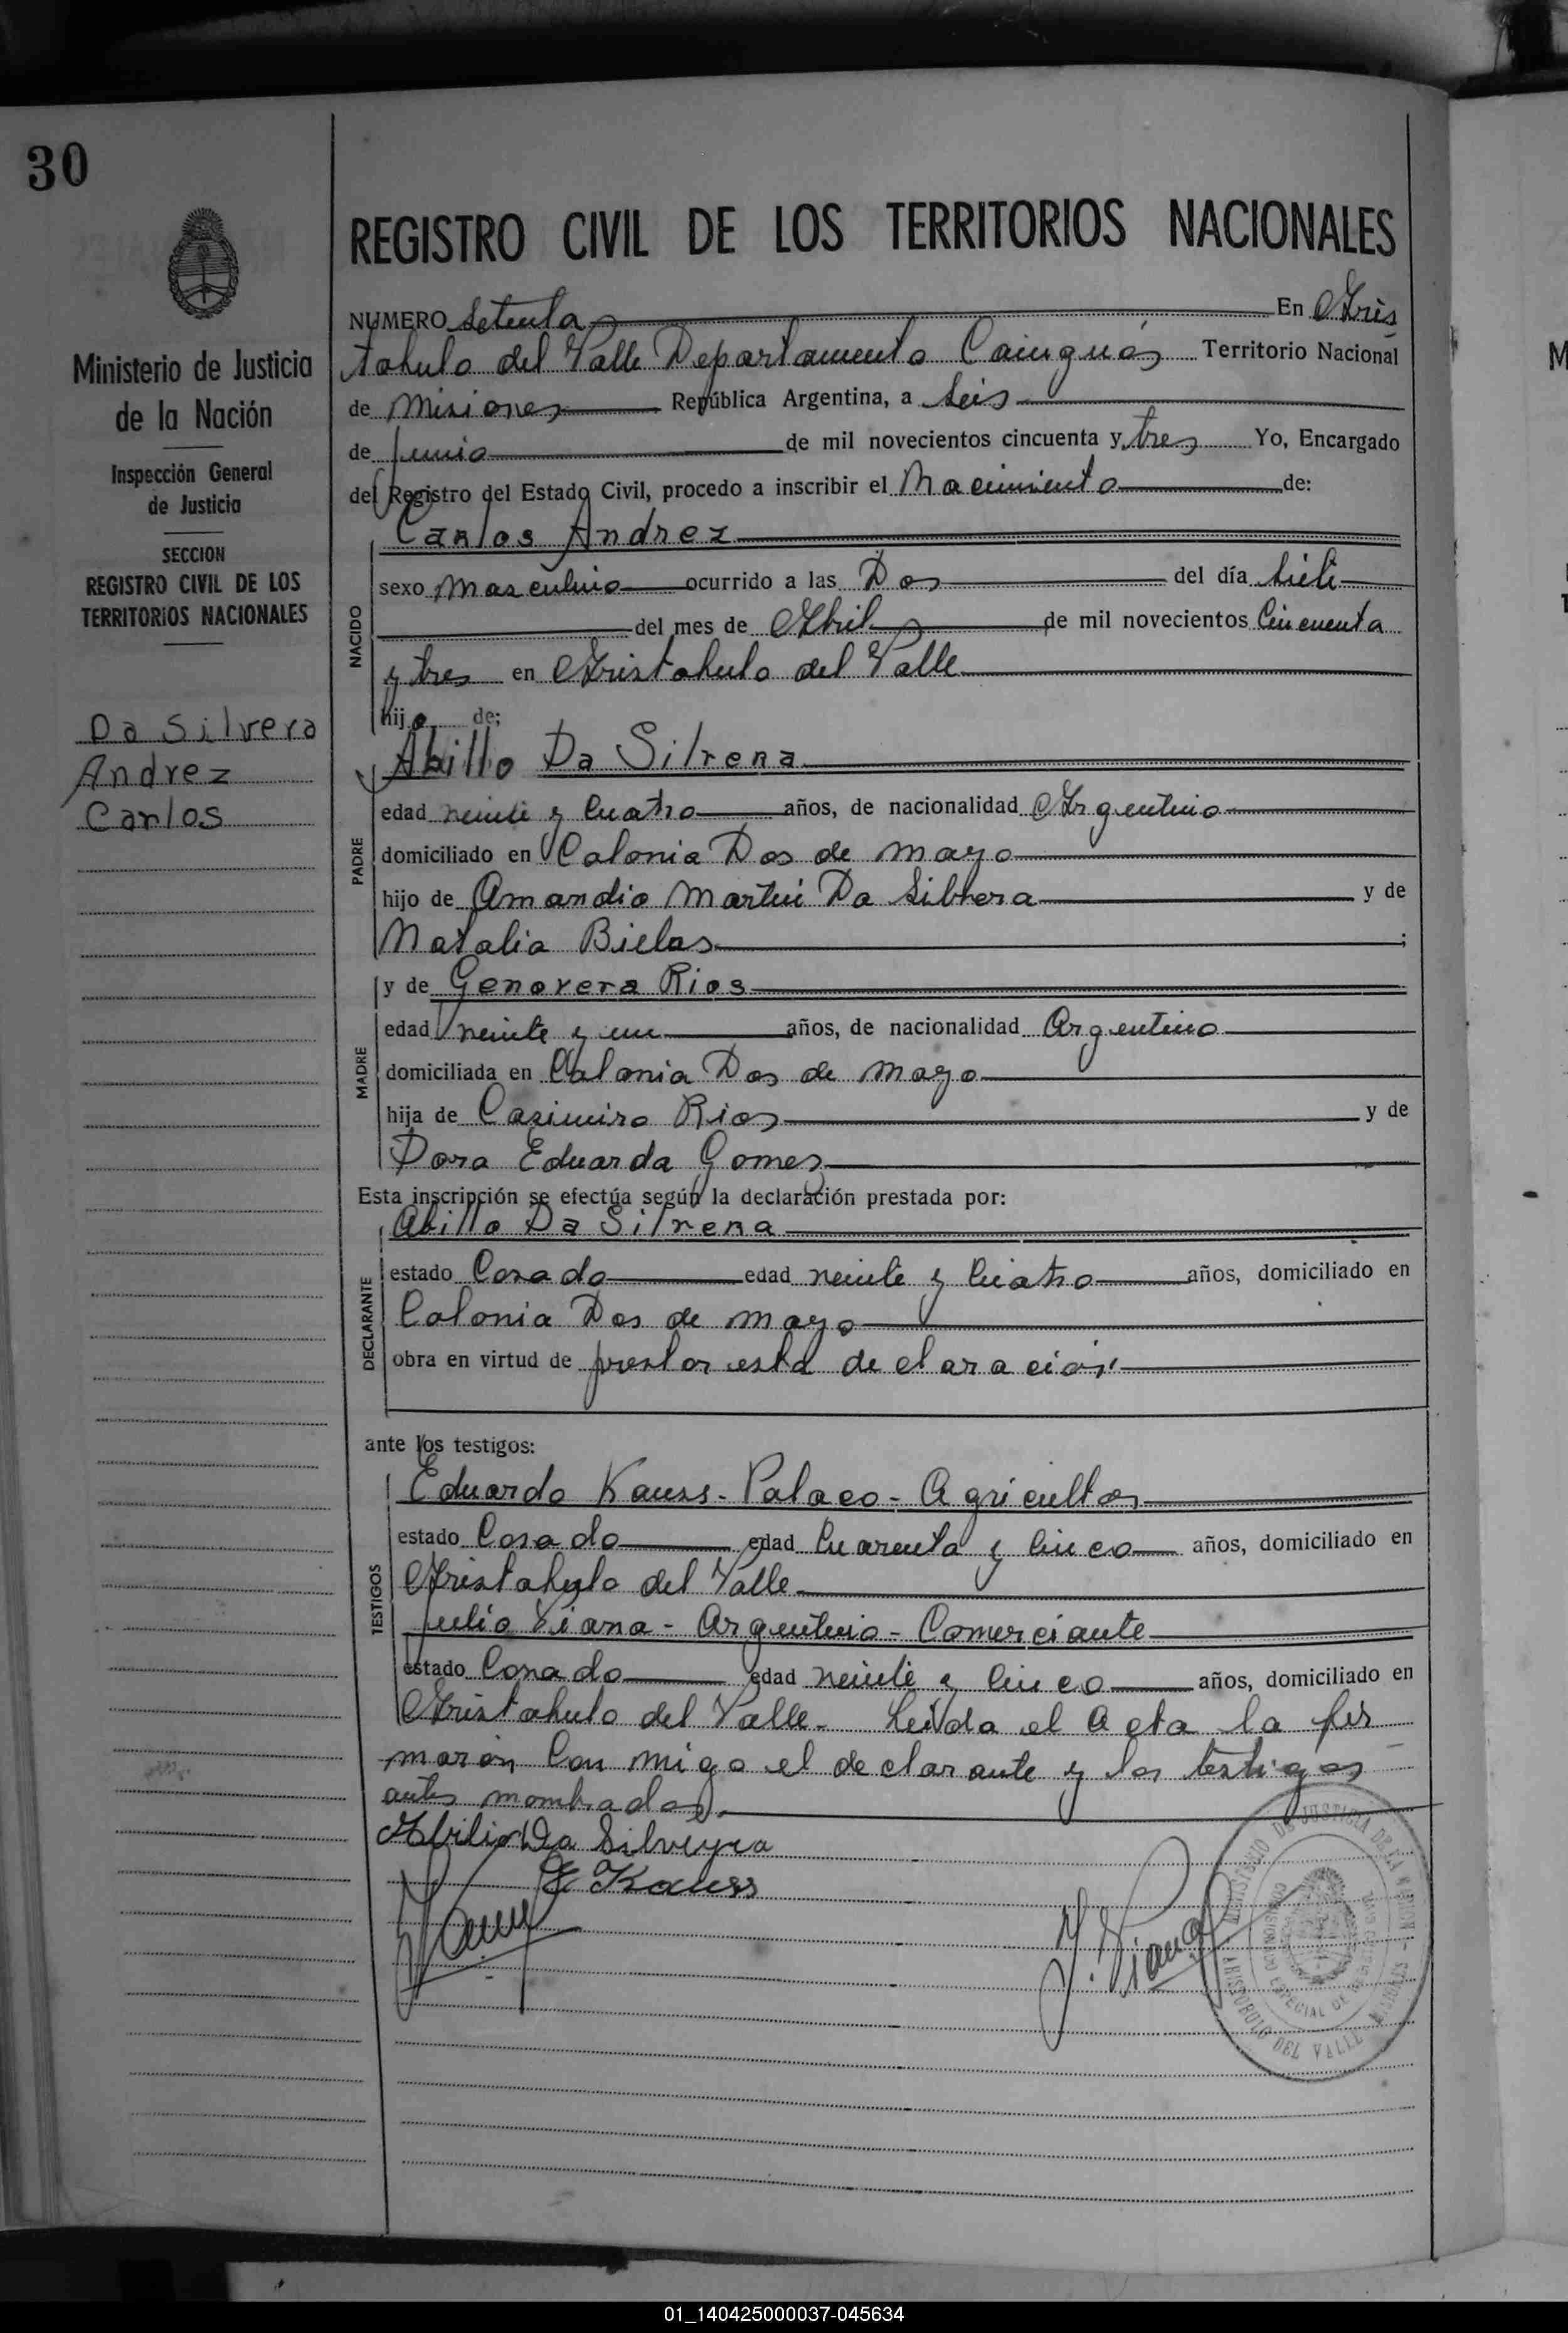 30
Ministerio de Justicia
de la Nación
Inspección General
de Justicia
SECCION
REGISTRO CIVIL DE LOS
TERRITORIOS NACIONALES
Da Silvera
Andrez
Carlos
REGISTRO CIVIL DE LOS TERRITORIOS NACIONALES
NUMERO Setenta En Aris
tobulo del Valle Departamento Cainguás Territorio Nacional
de Misiones República Argentina, a seis
de Junio de mil novecientos cincuenta y tres Yo, Encargado
del Registro del Estado Civil, procedo a inscribir el Nacimiento de:
Carlos Andrez
NACIDO
sexo Masculino ocurrido a las Dos del día siete
del mes de Abril de mil novecientos Cincuenta
y tres en Aristobulo del Valle
hijo de;
Abilio Da Silvera
PADRE
edad veinte y cuatro años, de nacionalidad Argentino
domiciliado en Colonia Dos de Mayo
hijo de Amandio Martin Da Silvera y de
Natalia Bielas ;
y de Genovera Rios
MADRE
edad veinte y un años, de nacionalidad Argentino
domiciliada en Colonia Dos de Mayo
hija de Casimiro Rios y de
Dora Eduarda Gomez
Esta inscripción se efectúa según la declaración prestada por:
Abilio Da Silvera
DECLARANTE
estado Casado edad veinte y cuatro años, domiciliado en
Colonia Dos de Mayo
obra en virtud de prestar esta declaración
ante los testigos:
Eduardo Kauss - Polaco - Agricultor
TESTIGOS
estado Casado edad Cuarenta y Cinco años, domiciliado en
Aristobulo del Valle
Julio Viana - Argentino - Comerciante
estado Casado edad veinte y cinco años, domiciliado en
Aristobulo del Valle - Leida el Acta la fir
maron Con migo el declarante y los testigos
antes nombrados.
Abilio Da Silveyra
E Kauss
J. Viana
MINISTERIO DE JUSTICIA DE LA NACION
ARISTOBULO DEL VALLE - MISIONES
01_140425000037-045634